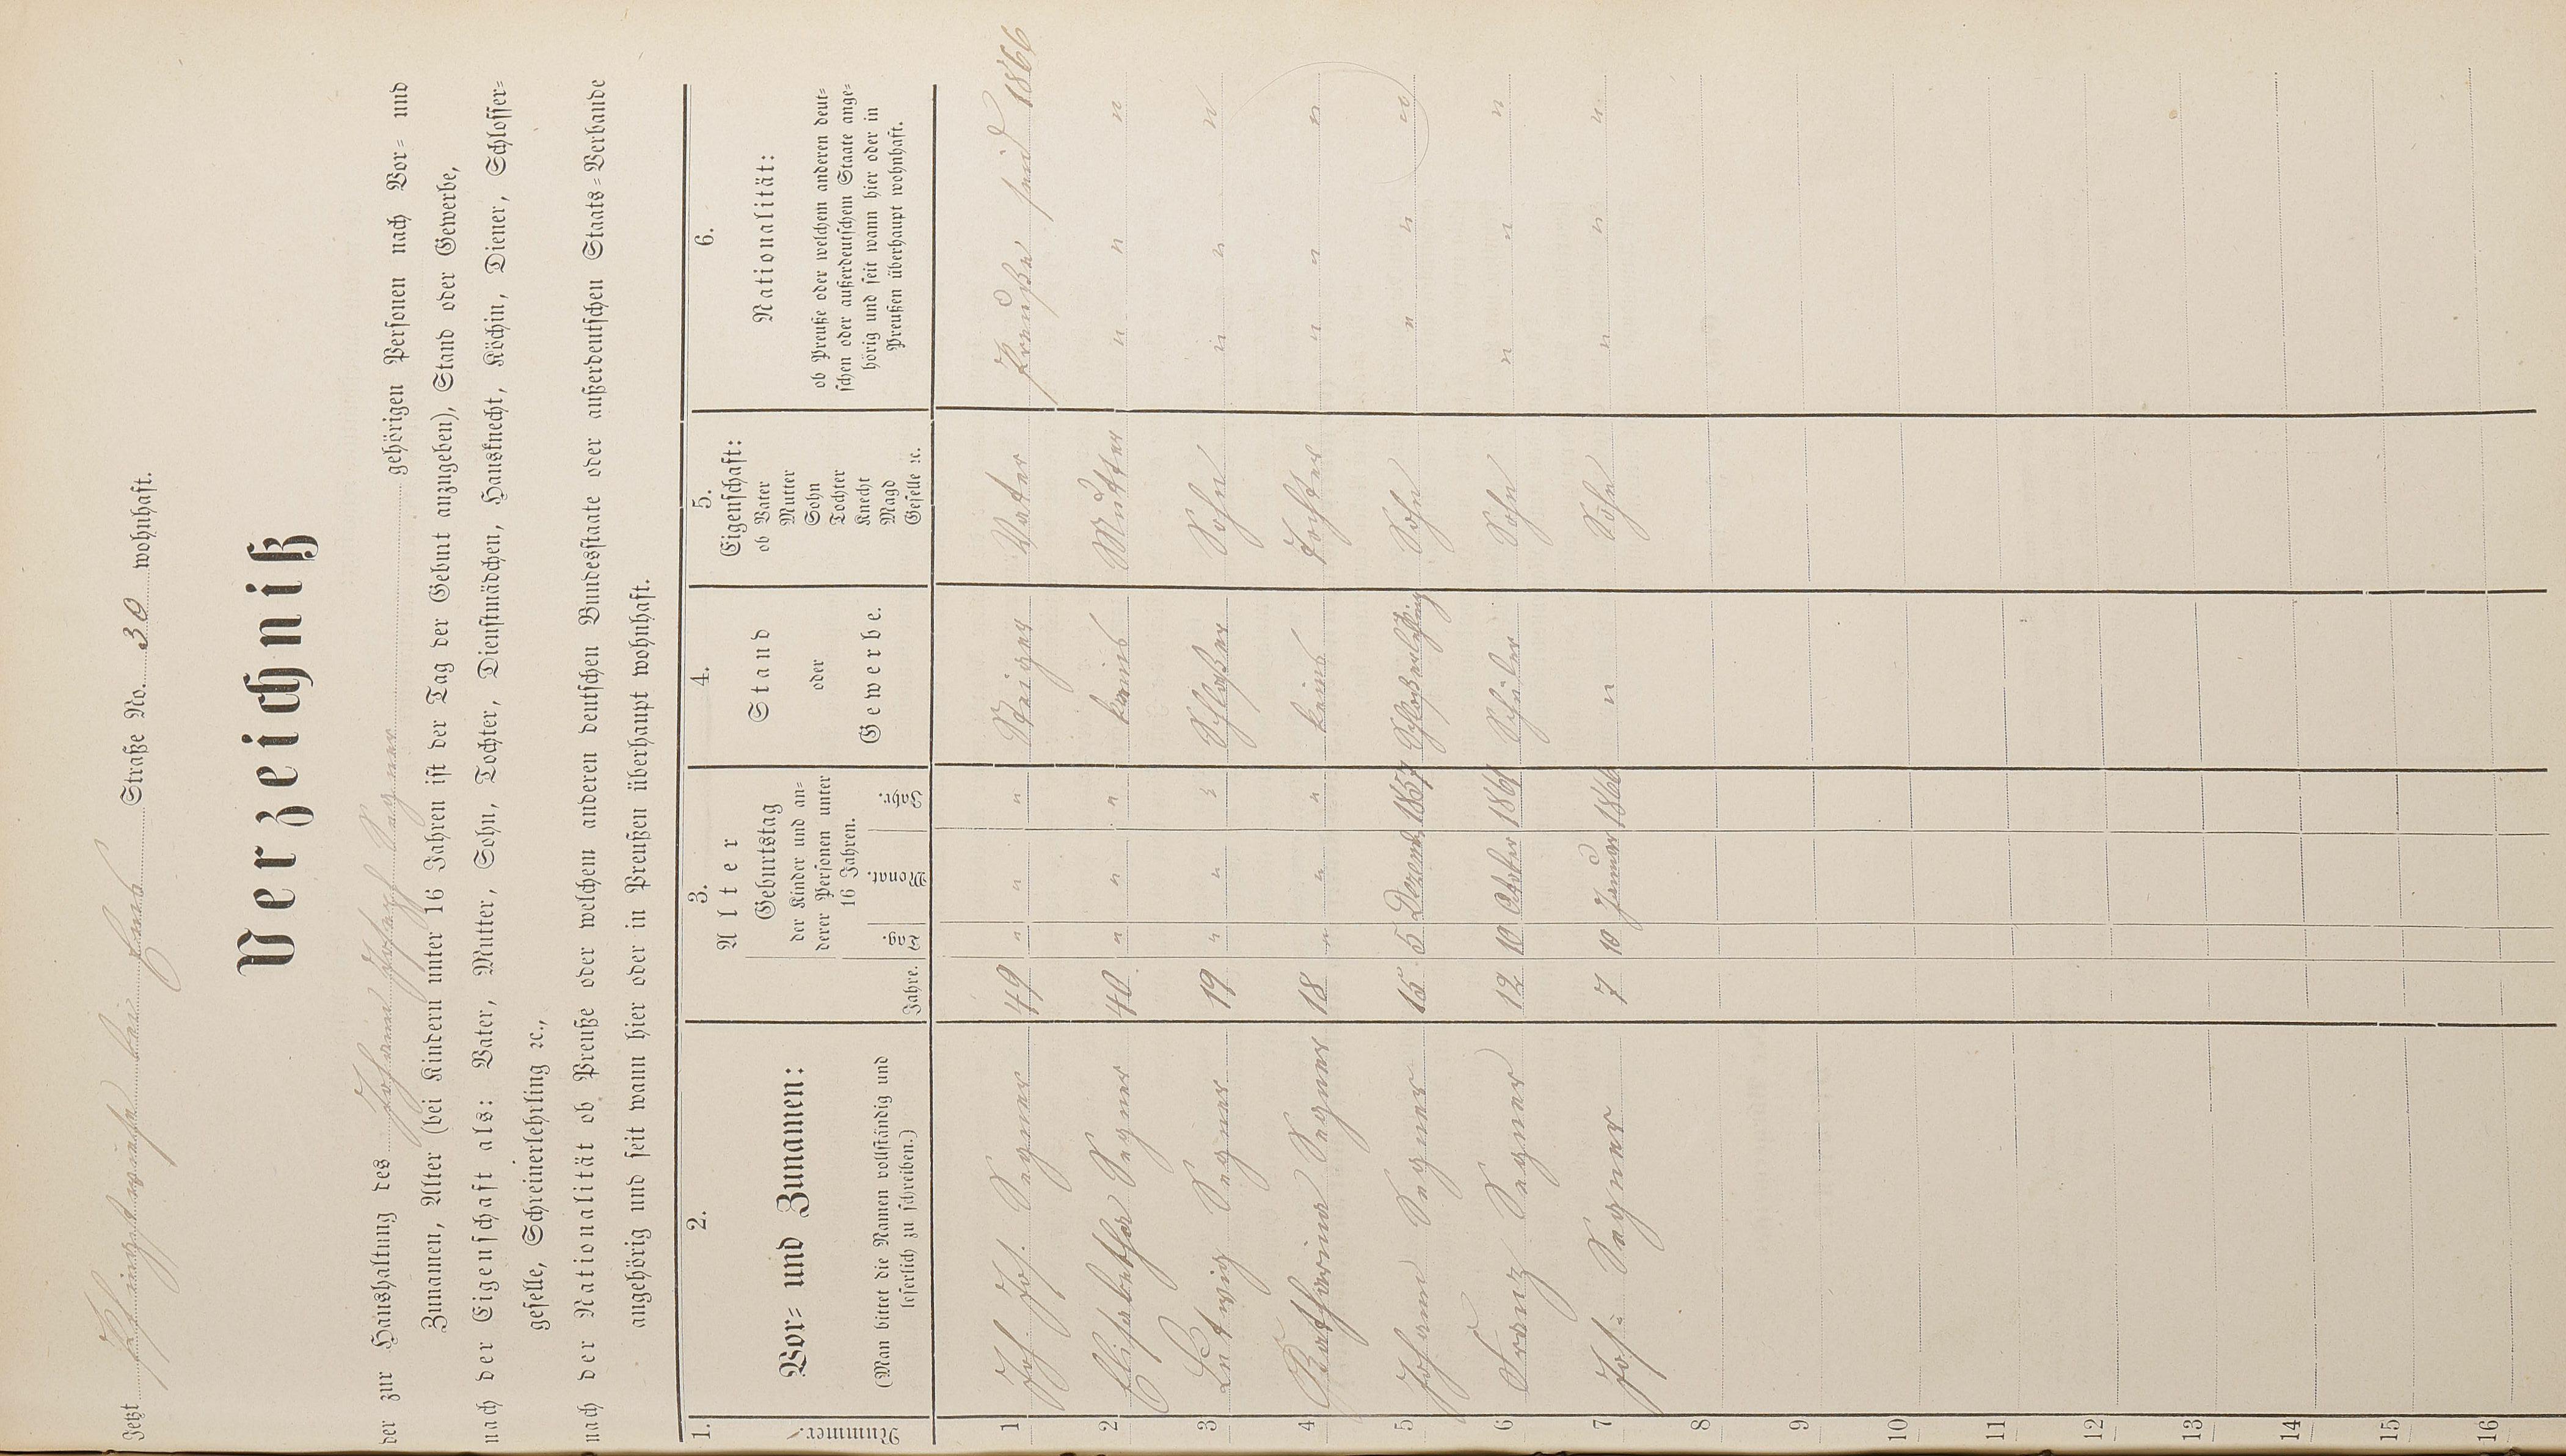 Jetzt Pfingstweide bei Ems Straße No. 30 wohnhaft.
Verzeichniß
der zur Haushaltung des Johann Josef Segner gehörigen Personen nach Vor= und
Zunamen, Alter (bei Kindern unter 16 Jahren ist der Tag der Geburt anzugeben), Stand oder Gewerbe,
nach der Eigenschaft als: Vater, Mutter, Sohn, Tochter, Dienstmädchen, Hausknecht, Köchin, Diener, Schlosser=
geselle, Schreinerlehrling ꝛc.,
nach der Nationalität ob Preuße oder welchem anderen deutschen Bundesstaate oder außerdeutschen Staats=Verbande
angehörig und seit wann hier oder in Preußen überhaupt wohnhaft.
1. 2. 3. 4. 5. 6.
Nummer.
Vor= und Zunamen:
(Man bittet die Namen vollständig und
leserlich zu schreiben.)
Alter
Jahre.
Geburtstag
der Kinder und an=
derer Personen unter
16 Jahren.
Tag. Monat. Jahr.
Stand
oder
Gewerbe.
Eigenschaft:
ob Vater
Mutter
Sohn
Tochter
Knecht
Magd
Geselle ꝛc.
Nationalität:
ob Preuße oder welchem anderen deut=
schen oder außerdeutschem Staate ange=
hörig und seit wann hier oder in
Preußen überhaupt wohnhaft.
1 Joh. Jos. Segner 49 " " " Steiger Vater Preuße seit 1866
2 Elisabetha Segner 40 " " " keins Mutter " " "
3 Ludwig Segner 19 " " " Schloßer Sohn " " "
4 Katharina Segner 18 " " " keins Tochter " " "
5 Johann Segner 15 5 Dezemb. 1857 Schloßerlehrling Sohn " " "
6 Franz Segner 12 10 October 1861 Schüler Sohn " " "
7 Jos: Segner 7 10 Januar 1866 " Sohn " " "
8
9
10
11
12
13
14
15
16